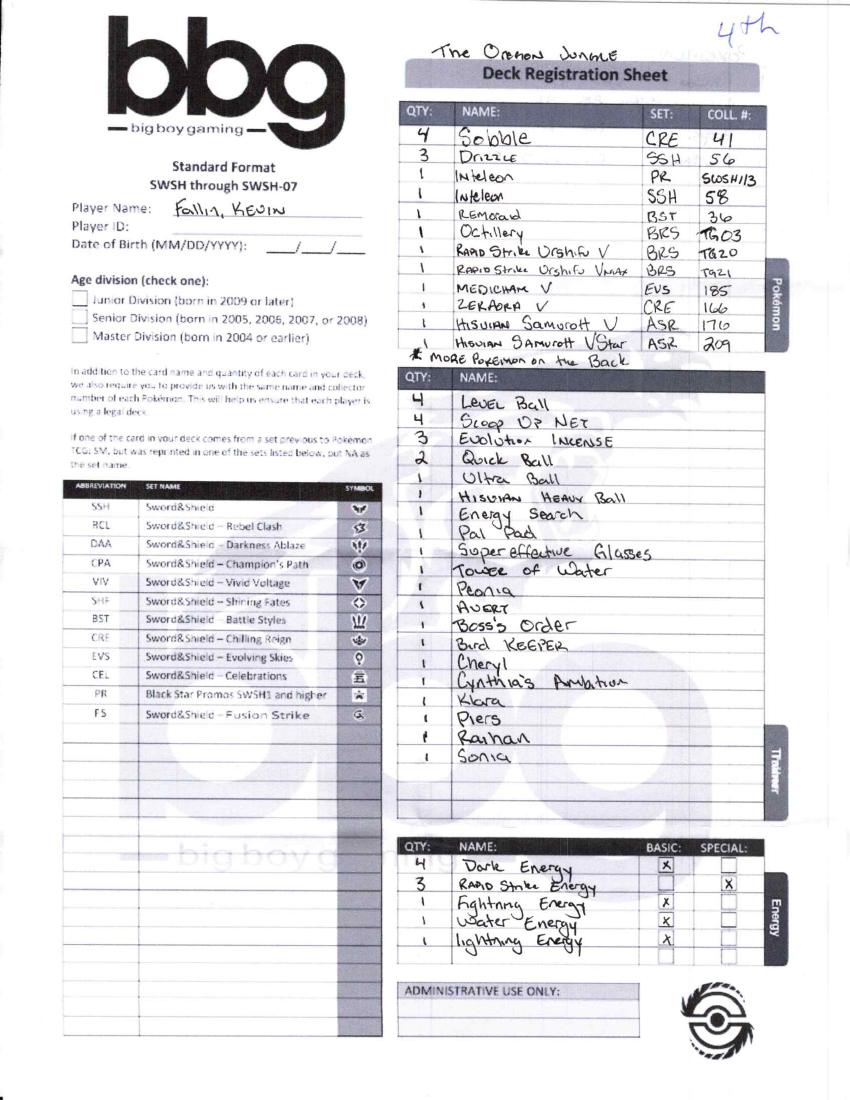 4th
bbg
big boy gaming
Standard Format
SWSH through SWSH-07
Player Name: Fallin, KEVIN
Player ID:
Date of Birth (MM/DD/YYYY): __/__/__
Age division (check one):
Junior Division (born in 2009 or later)
Senior Division (born in 2005, 2006, 2007, or 2008)
Master Division (born in 2004 or earlier)
In addition to the card name and quantity of each card in your deck,
we also require you to provide us with the same name and collector
number of each Pokémon. This will help us ensure that each player is
using a legal deck.
If one of the card in your deck comes from a set previous to Pokémon
TCG: SM, but was reprinted in one of the sets listed below, put NA as
the set name.
ABBREVIATION SET NAME SYMBOL
SSH Sword&Shield
RCL Sword&Shield – Rebel Clash
DAA Sword&Shield – Darkness Ablaze
CPA Sword&Shield – Champion's Path
VIV Sword&Shield – Vivid Voltage
SHF Sword&Shield – Shining Fates
BST Sword&Shield – Battle Styles
CRE Sword&Shield – Chilling Reign
EVS Sword&Shield – Evolving Skies
CEL Sword&Shield – Celebrations
PR Black Star Promos SWSH1 and higher
FS Sword&Shield – Fusion Strike
The Oregon Jungle
Deck Registration Sheet
QTY: NAME: SET: COLL. #:
4 Sobble CRE 41
3 Drizzle SSH 56
1 Inteleon PR SWSH113
1 Inteleon SSH 58
1 Remoraid BST 36
1 Octillery BRS TG03
1 Rapid Strike Urshifu V BRS TG20
1 Rapid Strike Urshifu Vmax BRS TG21
1 MEDICHAM V EVS 185
1 ZERAORA V CRE 166
1 Hisuian Samurott V ASR 176
1 Hisuian Samurott VStar ASR 209
* MORE POKEMON on the Back
Pokémon
QTY: NAME:
4 Level Ball
4 Scoop Up Net
3 Evolution Incense
2 Quick Ball
1 Ultra Ball
1 Hisuian Heavy Ball
1 Energy Search
1 Pal Pad
1 Super effective Glasses
1 Tower of Water
1 Peonia
1 AVERY
1 Boss's Order
1 Bird KEEPER
1 Cheryl
1 Cynthia's Ambition
1 Klara
1 Piers
1 Raihan
1 Sonia
Trainer
QTY: NAME: BASIC: SPECIAL:
4 Dark Energy x
3 RAPID Strike Energy x
1 Fightning Energy x
1 Water Energy x
1 lightning Energy x
Energy
ADMINISTRATIVE USE ONLY:
big boy gaming